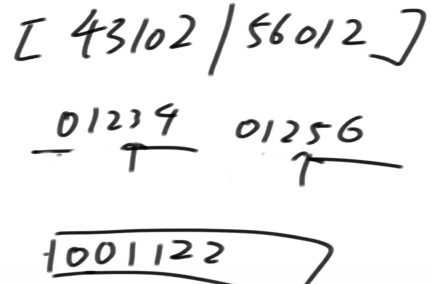 [ 43102 / 56012 ]
01234 01256
1001122